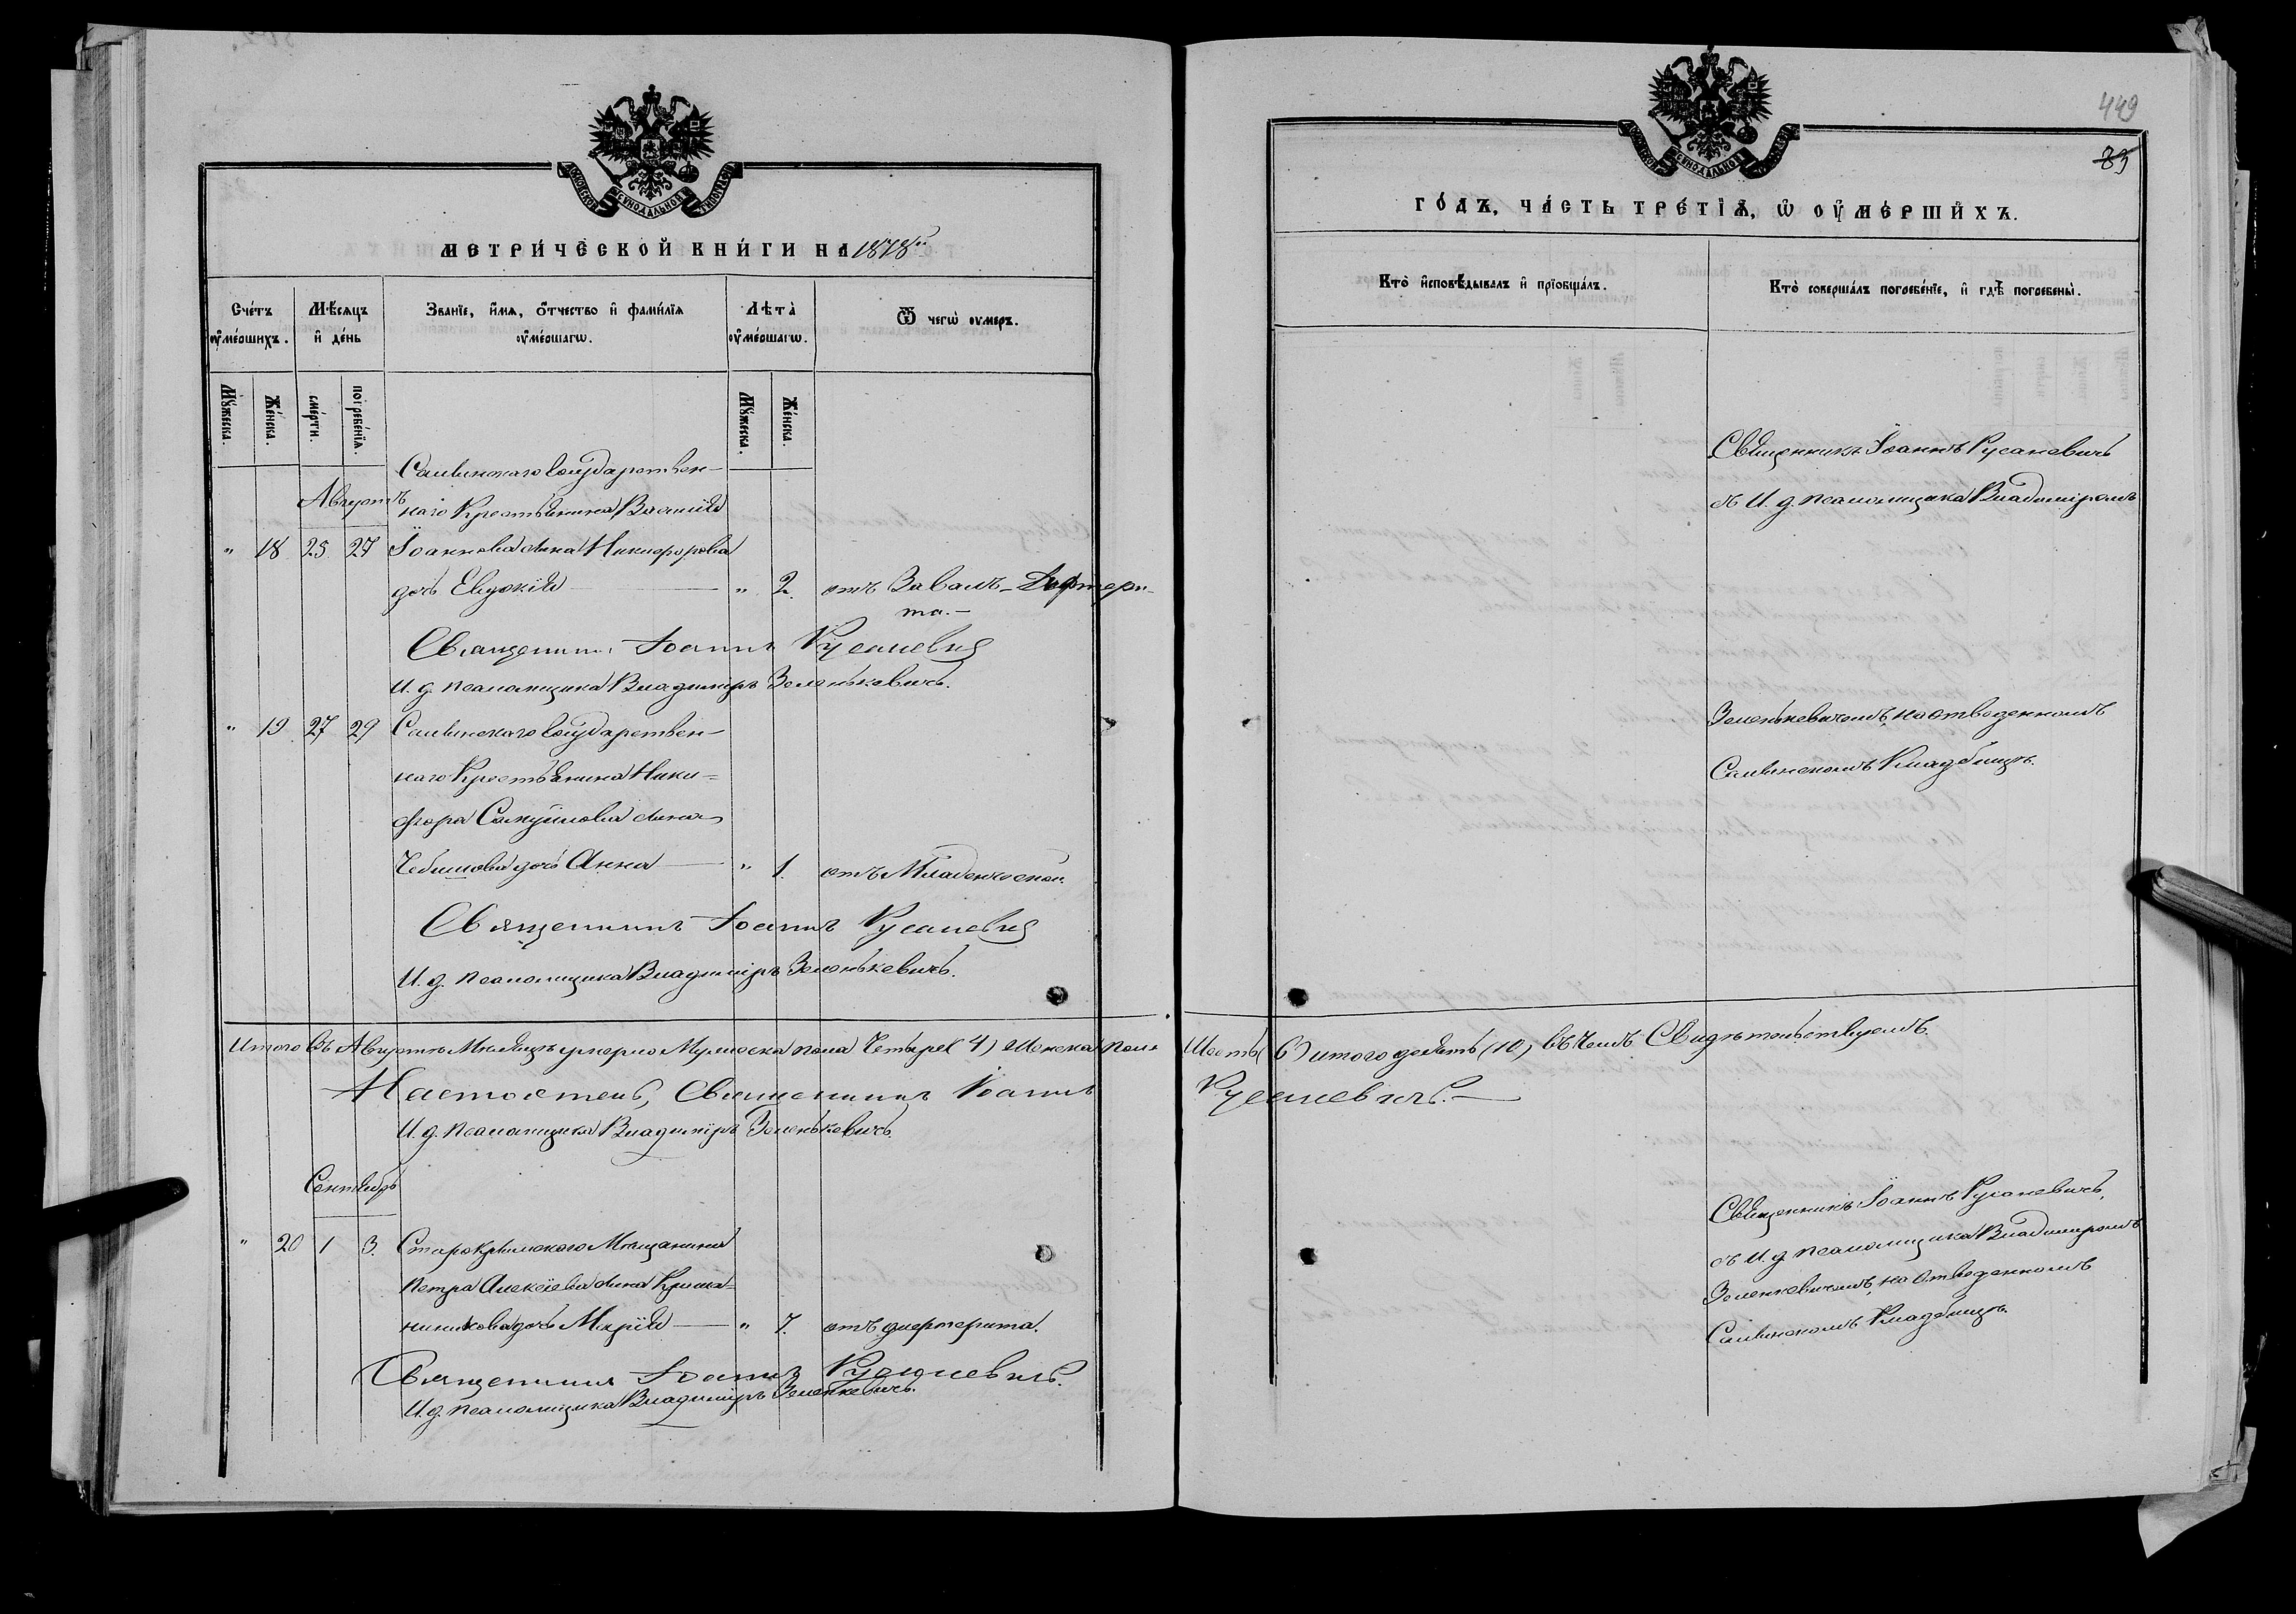 МОСКОВСКОЙ СѴНОДАЛЬНОЙ ТИПОГРАФІИ
МЕТРИ́ЧЕСКОЙ КНИ́ГИ НА 1878й
Сче́тъ оу҆ме́ршихъ.
Мѣ́сяцъ и҆ де́нь
Зва́нїе, и҆́мя, ѻ҆́тчество и҆ фами́лїя оу҆ме́ршагѡ.
Лѣта̀ оу҆ме́ршагѡ.
Ѿ чегѡ̀ оумеръ.
Мꙋ́жеска.
Же́нска.
сме́рти.
погребе́нїя.
Мꙋ́жеска.
Же́нска.
Августъ
Салынскаго Государствен-
наго Крестьянина Василія
" 18 25 27 Іоаннова сына Никифорова
дочь Евдокія — " 2. отъ Дифтери-
та.—
Священникъ Іоаннъ Русаневич
И. д. псаломщика Владиміръ Зеленькевичъ.
" 19 27 29 Салынскаго Государствен-
наго Крестьянина Ники-
фора Самуйлова сына
дочь Анна — " 1. отъ Младенческой.
Священникъ Іоаннъ Русаневич
И. д. псаломщика Владиміръ Зеленькевичъ.
Итого въ Августѣ Мѣсяцѣ умерло Мужеска пола Четыре (4) Женска пола Шесть (6) итого десять (10) въ чемъ Свидѣтельствуемъ.
Настоятель, Священникъ Іоаннъ Русаневичъ.—
И. д. псаломщика Владиміръ Зеленькевичъ.
Сентябрь
" 20 1 3. Старокрымскаго Мѣщанина
Петра Алексіева сына
дочь Марія — " 7. отъ дифтерита.
Священникъ Іоаннъ Русаневичъ.
И. д. псаломщика Владиміръ Зеленкевичъ.
449
83
МОСКОВСКОЙ СѴНОДАЛЬНОЙ ТИПОГРАФІИ
ГО́ДЪ, ЧА́СТЬ ТРЕ́ТЇѦ, Ѡ҆ ОУ҆МЕ́РШИХЪ.
Кто̀ и҆сповѣ́дывалъ и҆ прїобща́лъ.
Кто̀ соверша́лъ погребе́нїе, и҆ гдѣ̀ погребены̀.
Священникъ Іоаннъ Русаневичъ
съ И. д. псаломщика Владиміромъ
Зеленькевичемъ, на отведенномъ
Салынскомъ Кладбищѣ.
Священникъ Іоаннъ Русаневичъ,
съ И. д. псаломщика Владиміромъ
Зеленкевичемъ, на Отведенномъ
Салынскомъ Кладбищѣ.